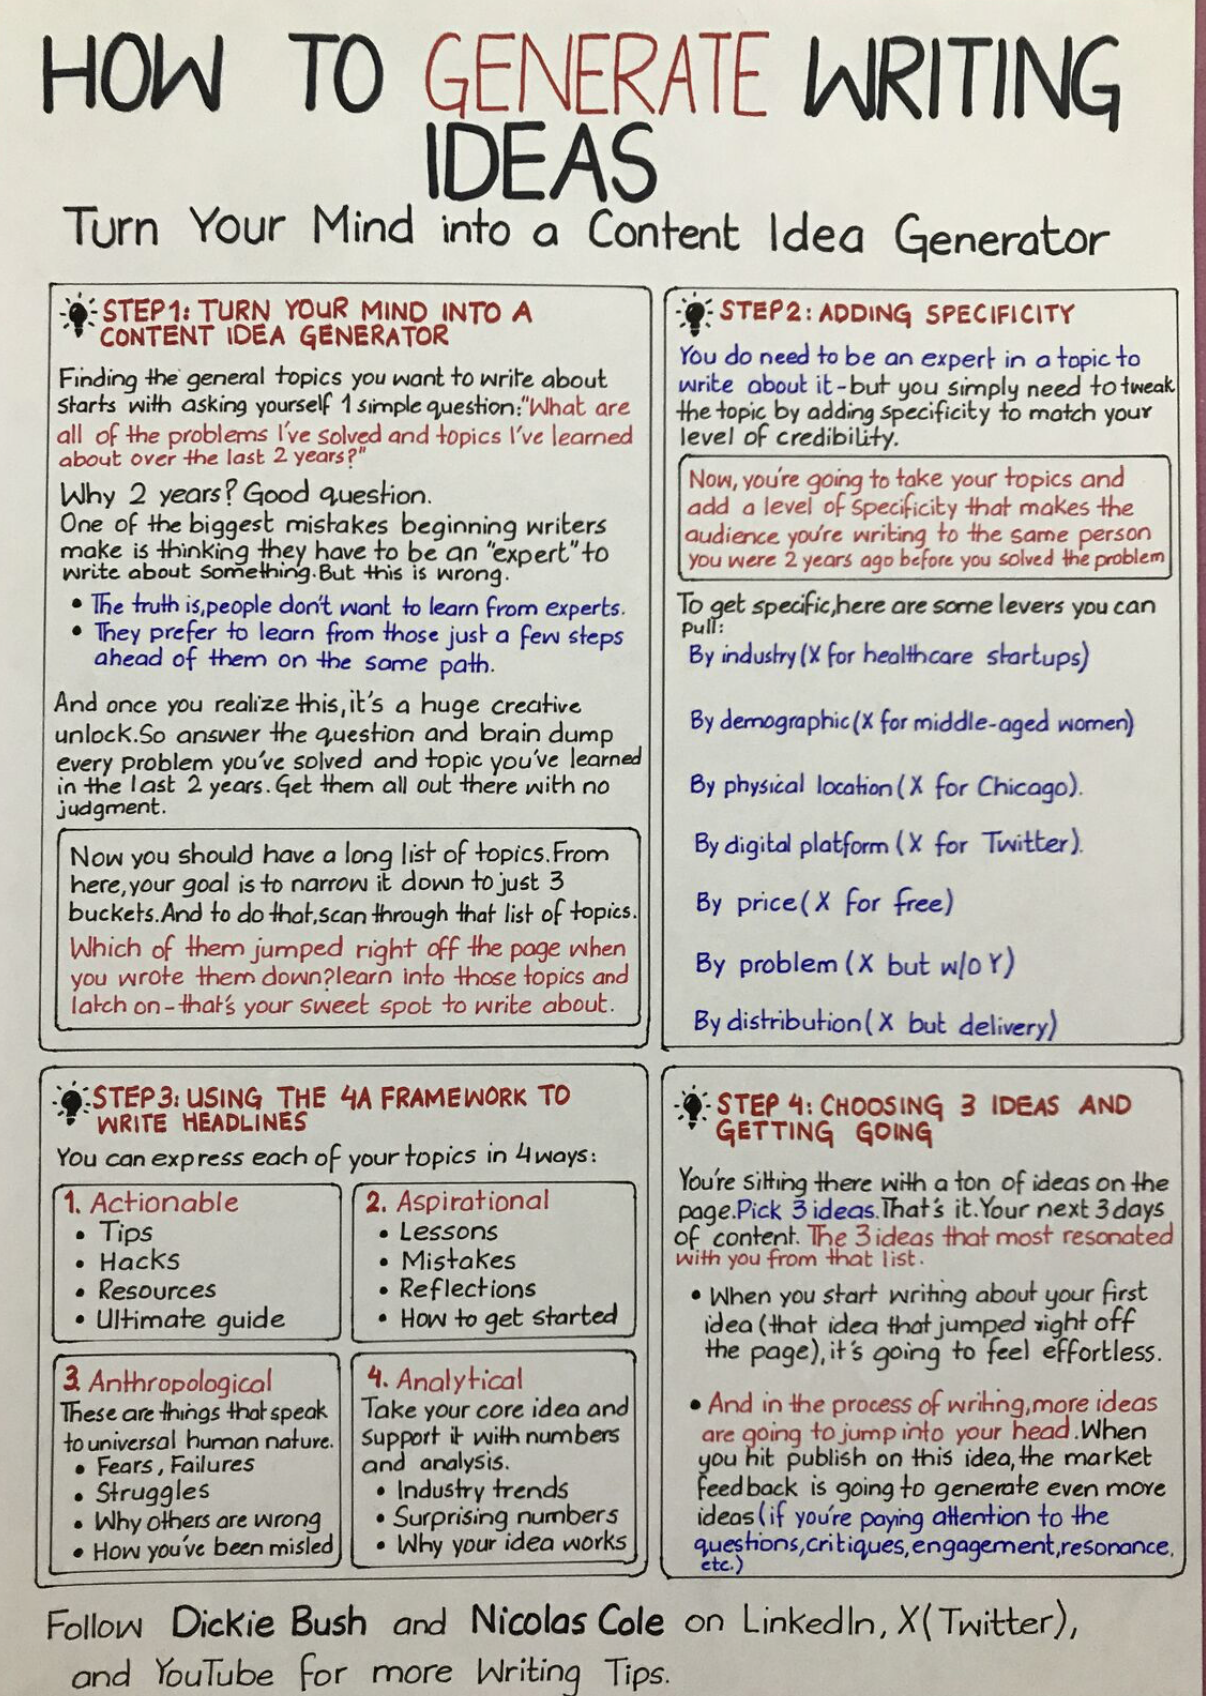 HOW TO GENERATE WRITING
IDEAS
Turn Your Mind into a Content Idea Generator
STEP1: TURN YOUR MIND INTO A
CONTENT IDEA GENERATOR
Finding the general topics you want to write about
starts with asking yourself 1 simple question:"What are
all of the problems I've solved and topics I've learned
about over the last 2 years?"
Why 2 years? Good question.
One of the biggest mistakes beginning writers
make is thinking they have to be an "expert" to
write about something.But this is wrong.
• The truth is,people don't want to learn from experts.
• They prefer to learn from those just a few steps
ahead of them on the same path.
And once you realize this,it's a huge creative
unlock.So answer the question and brain dump
every problem you've solved and topic you've learned
in the last 2 years. Get them all out there with no
judgment.
Now you should have a long list of topics.From
here,your goal is to narrow it down to just 3
buckets.And to do that,scan through that list of topics.
Which of them jumped right off the page when
you wrote them down?learn into those topics and
latch on-that's your sweet spot to write about.
STEP2: ADDING SPECIFICITY
You do need to be an expert in a topic to
write about it-but you simply need to tweak
the topic by adding specificity to match your
level of credibility.
Now, you're going to take your topics and
add a level of specificity that makes the
audience you're writing to the same person
you were 2 years ago before you solved the problem
To get specific,here are some levers you can
pull:
By industry (X for healthcare startups)
By demographic (X for middle-aged women)
By physical location (X for Chicago).
By digital platform (X for Twitter).
By price (X for free)
By problem (X but w/o Y)
By distribution (X but delivery)
STEP3: USING THE 4A FRAMEWORK TO
WRITE HEADLINES
You can express each of your topics in 4 ways:
1. Actionable
• Tips
• Hacks
• Resources
• Ultimate guide
2. Aspirational
• Lessons
• Mistakes
• Reflections
• How to get started
3. Anthropological
These are things that speak
to universal human nature.
• Fears, Failures
• Struggles
• Why others are wrong
• How you've been misled
4. Analytical
Take your core idea and
support it with numbers
and analysis.
• Industry trends
• Surprising numbers
• Why your idea works
STEP 4: CHOOSING 3 IDEAS AND
GETTING GOING
You're sitting there with a ton of ideas on the
page.Pick 3 ideas.That's it.Your next 3 days
of content. The 3 ideas that most resonated
with you from that list.
• When you start writing about your first
idea (that idea that jumped right off
the page),it's going to feel effortless.
• And in the process of writing,more ideas
are going to jump into your head.When
you hit publish on this idea,the market
feedback is going to generate even more
ideas (if you're paying attention to the
questions,critiques,engagement,resonance,
etc.)
Follow Dickie Bush and Nicolas Cole on LinkedIn, X (Twitter),
and YouTube for more Writing Tips.